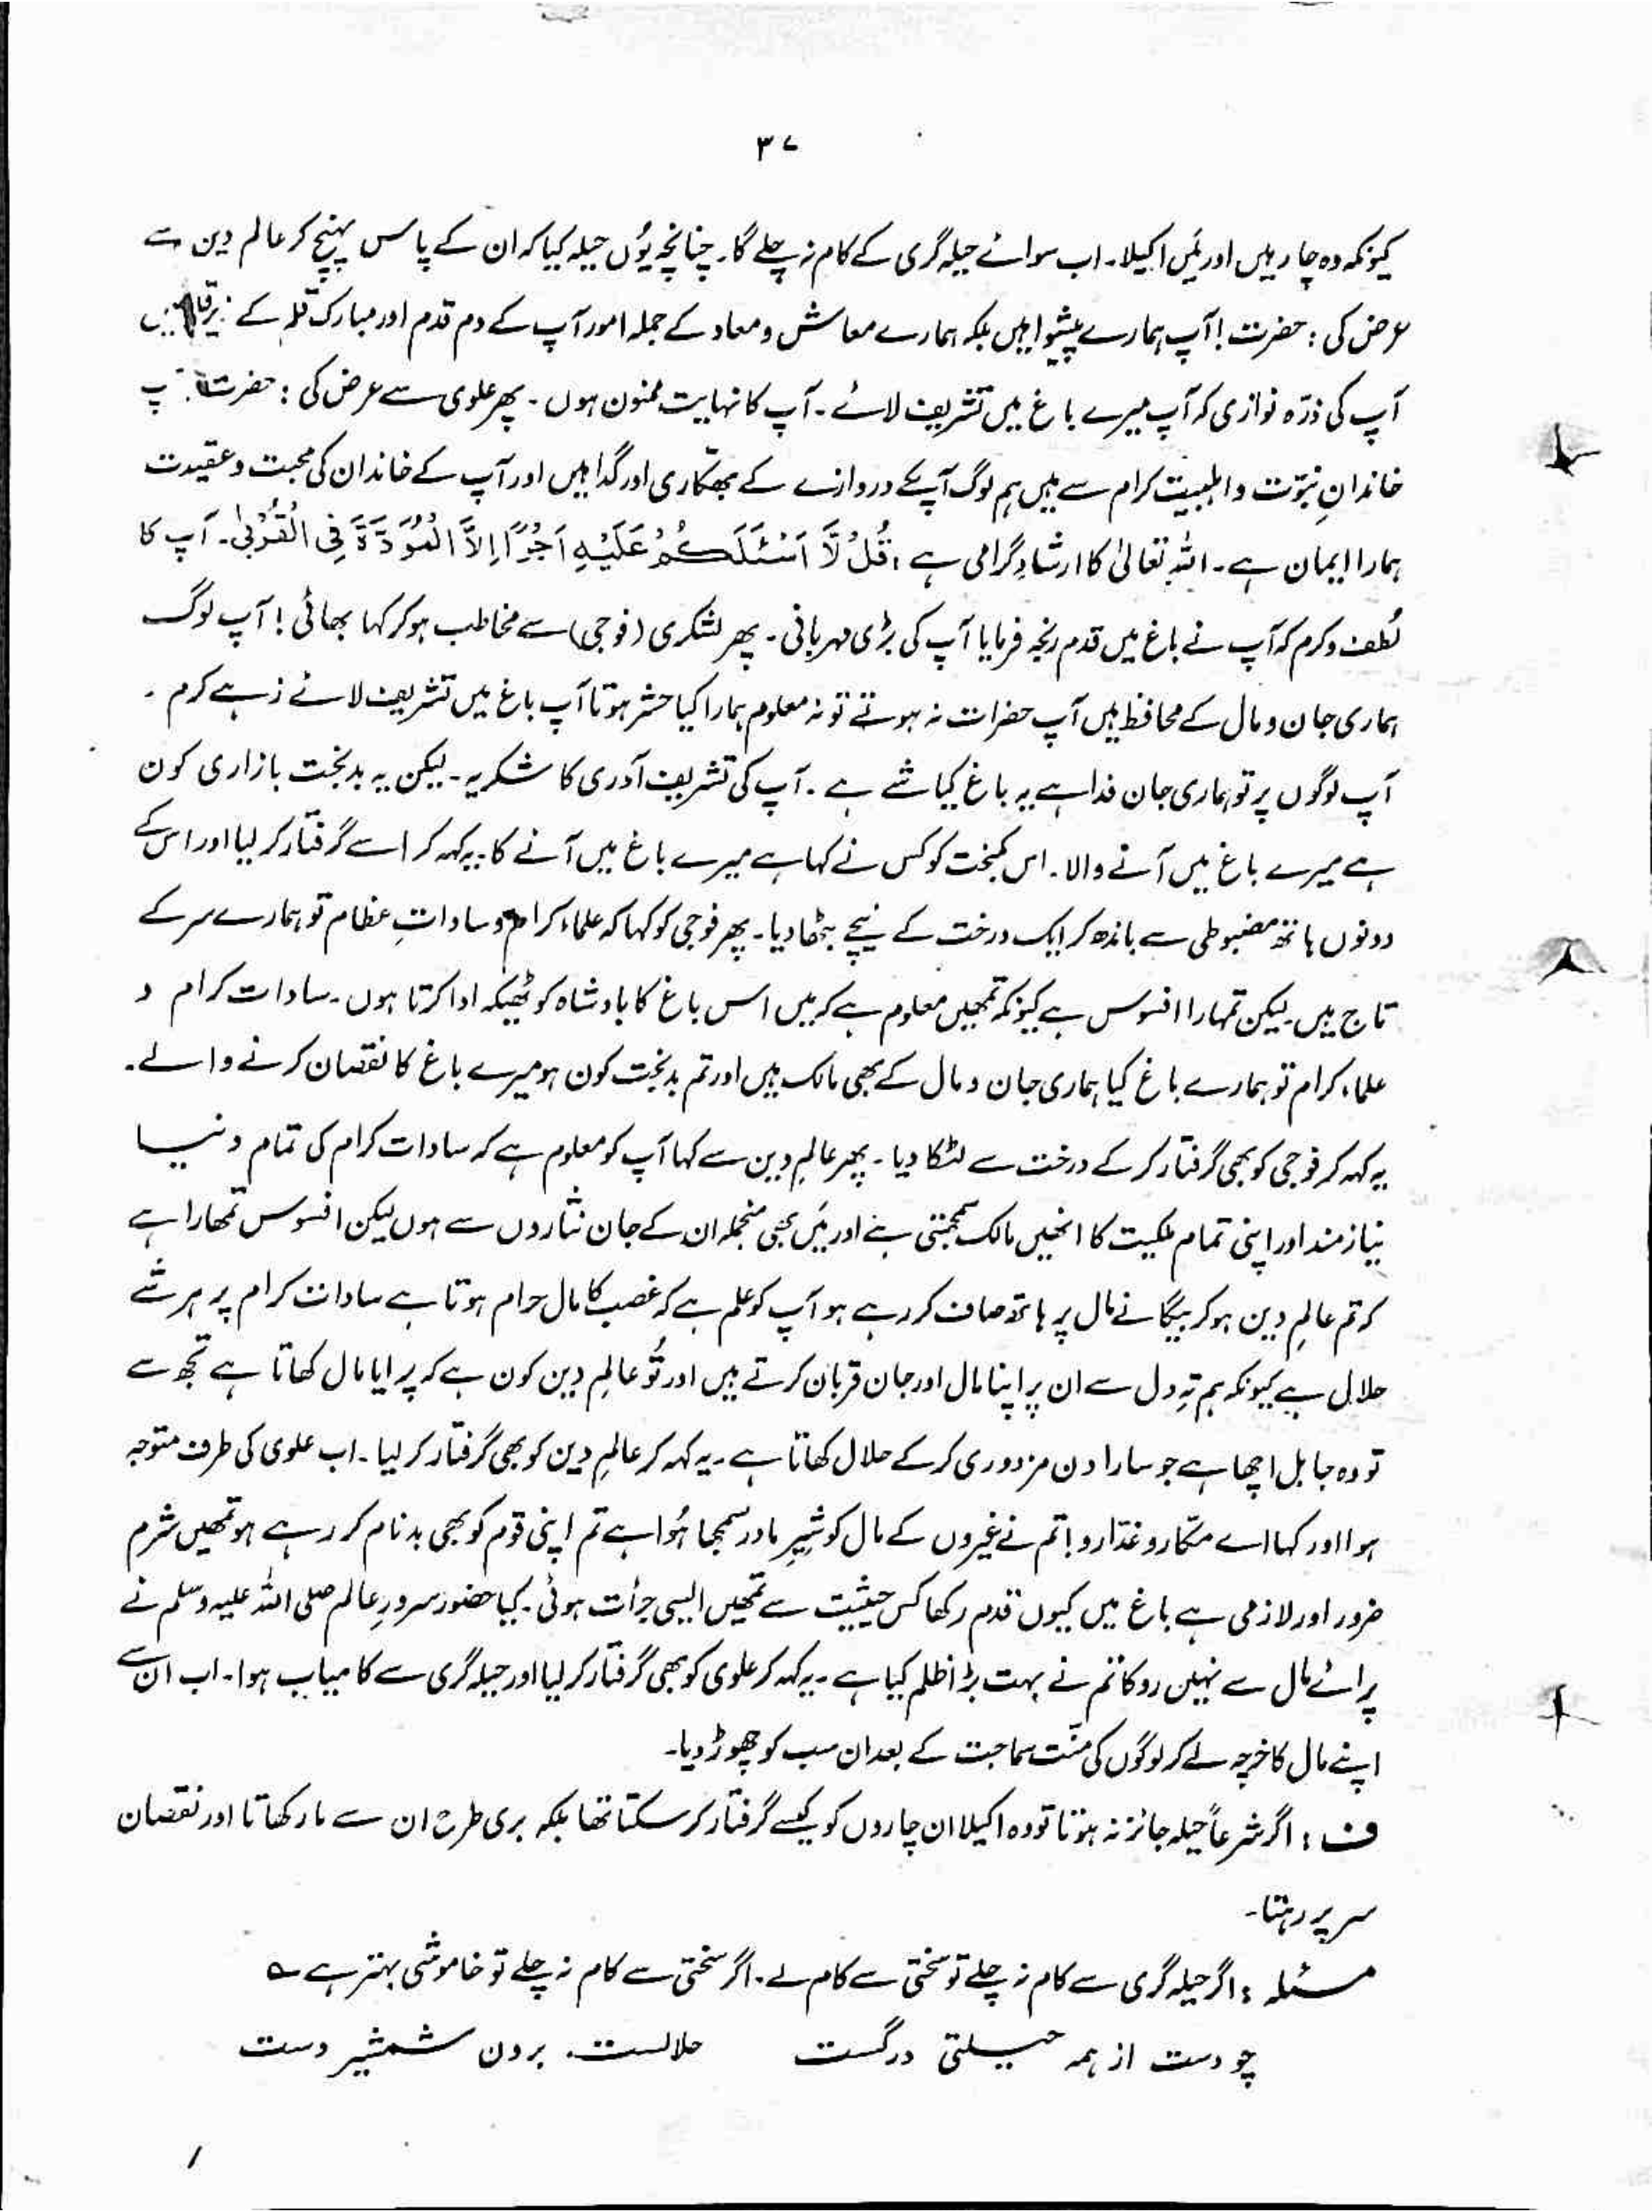 ۳۷
کیونکہ وہ چار ہیں اور مَیں اکیلا۔ اب سوائے حیلہ گری کے کام نہ چلے گا۔ چنانچہ یُوں حیلہ کیا کہ ان کے پاس پہنچ کر عالم دین سے
عرض کی : حضرت ! آپ ہمارے پیشوا ہیں بلکہ ہمارے معاش و معاد کے جملہ امور آپ کے دم قدم اور مبارک قلم کے
آپ کی ذرّہ نوازی کہ آپ میرے باغ میں تشریف لائے۔ آپ کا نہایت ممنون ہوں۔ پھر علوی سے عرض کی : حضرت! آپ
خاندانِ نبوّت و اہلبیت کرام سے ہیں ہم لوگ آپ کے دروازے کے بھکاری اور گدا ہیں اور آپ کے خاندان کی محبت و عقیدت
ہمارا ایمان ہے۔ اللہ تعالیٰ کا ارشادِ گرامی ہے : قُلْ لَّا اَسْئَلُكُمْ عَلَيْهِ اَجْرًا اِلَّا الْمَوَدَّةَ فِى الْقُرْبٰى۔ آپ کا
لُطف و کرم کہ آپ نے باغ میں قدم رنجہ فرمایا آپ کی بڑی مہربانی۔ پھر لشکری (فوجی) سے مخاطب ہو کر کہا بھائی ! آپ لوگ
ہماری جان و مال کے محافظ ہیں آپ حضرات نہ ہوتے تو نہ معلوم ہمارا کیا حشر ہوتا آپ باغ میں تشریف لائے زہے کرم ۔
آپ لوگوں پر تو ہماری جان فدا ہے یہ باغ کیا شے ہے ۔ آپ کی تشریف آوری کا شکریہ۔ لیکن یہ بدبخت بازاری کون
ہے میرے باغ میں آنے والا۔ اس کمبخت کو کس نے کہا ہے میرے باغ میں آنے کا۔ یہ کہہ کر اسے گرفتار کر لیا اور اس کے
دونوں ہاتھ مضبوطی سے باندھ کر ایک درخت کے نیچے بٹھا دیا۔ پھر فوجی کو کہا کہ علماء کرام و ساداتِ عظام تو ہمارے سر کے
تاج ہیں۔ لیکن تمہارا افسوس ہے کیونکہ تمھیں معلوم ہے کہ میں اس باغ کا بادشاہ کو ٹھیکہ ادا کرتا ہوں۔ سادات کرام و
علماء کرام تو ہمارے باغ کیا ہماری جان و مال کے بھی مالک ہیں اور تم بدبخت کون ہو میرے باغ کا نقصان کرنے والے۔
یہ کہہ کر فوجی کو بھی گرفتار کر کے درخت سے لٹکا دیا۔ پھر عالمِ دین سے کہا آپ کو معلوم ہے کہ سادات کرام کی تمام دنیا
نیازمند اور اپنی تمام ملکیت کا انھیں مالک سمجھتی ہے اور مَیں بھی منجملہ ان کے جان نثاروں سے ہوں لیکن افسوس تمھارا ہے
کہ تم عالمِ دین ہو کر بیگانے مال پر ہاتھ صاف کر رہے ہو آپ کو علم ہے کہ غصب کا مال حرام ہوتا ہے سادات کرام پر ہر شے
حلال ہے کیونکہ ہم تہِ دل سے ان پر اپنا مال اور جان قربان کرتے ہیں اور تُو عالمِ دین کون ہے کہ پرایا مال کھاتا ہے تجھ سے
تو وہ جاہل اچھا ہے جو سارا دن مزدوری کر کے حلال کھاتا ہے۔ یہ کہہ کر عالمِ دین کو بھی گرفتار کر لیا۔ اب علوی کی طرف متوجہ
ہوا اور کہا اے مکّار و غدّارو ! تم نے غیروں کے مال کو شیرِ مادر سمجھا ہُوا ہے تم اپنی قوم کو بھی بدنام کر رہے ہو تمھیں شرم
ضرور اور لازمی ہے باغ میں کیوں قدم رکھا کس حیثیت سے تمھیں ایسی جرأت ہوئی۔ کیا حضور سرورِ عالم صلی اللہ علیہ وسلم نے
پرائے مال سے نہیں روکا تم نے بہت بڑا ظلم کیا ہے۔ یہ کہہ کر علوی کو بھی گرفتار کر لیا اور حیلہ گری سے کامیاب ہوا۔ اب ان سے
اپنے مال کا خرچہ لے کر لوگوں کی منّت سماجت کے بعد ان سب کو چھوڑ دیا۔
ف : اگر شرعاً حیلہ جائز نہ ہوتا تو وہ اکیلا ان چاروں کو کیسے گرفتار کر سکتا تھا بلکہ بری طرح ان سے مار کھاتا اور نقصان
سر پر رہتا۔
مسئلہ : اگر حیلہ گری سے کام نہ چلے تو سختی سے کام لے۔ اگر سختی سے کام نہ چلے تو خاموشی بہتر ہے ؎
چو دست از ہمہ حیلتی درگست حلالست بردن شمشیر دست